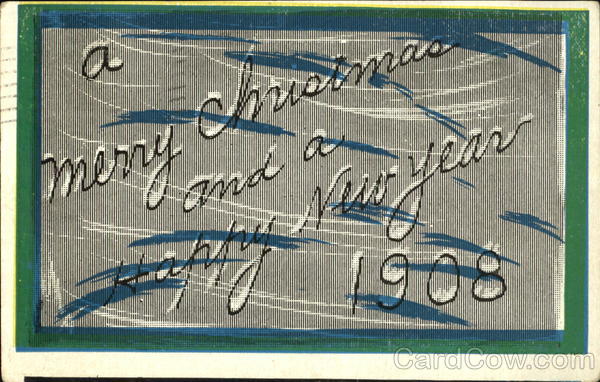 a
merry Christmas
and a
Happy New year
1908
CardCow.com